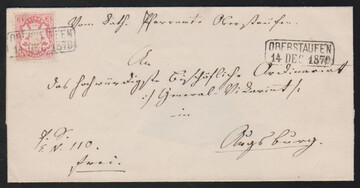 Vom kath. Pfarramte Oberstaufen.
OBERSTAUFEN
14 DEC 1870
OBERSTAUFEN
14 DEC 1870
An
das hochwürdigste Bischöfliche Ordinariat
General-Vikariat
in
Augsburg.
E. N. 110.
frei.